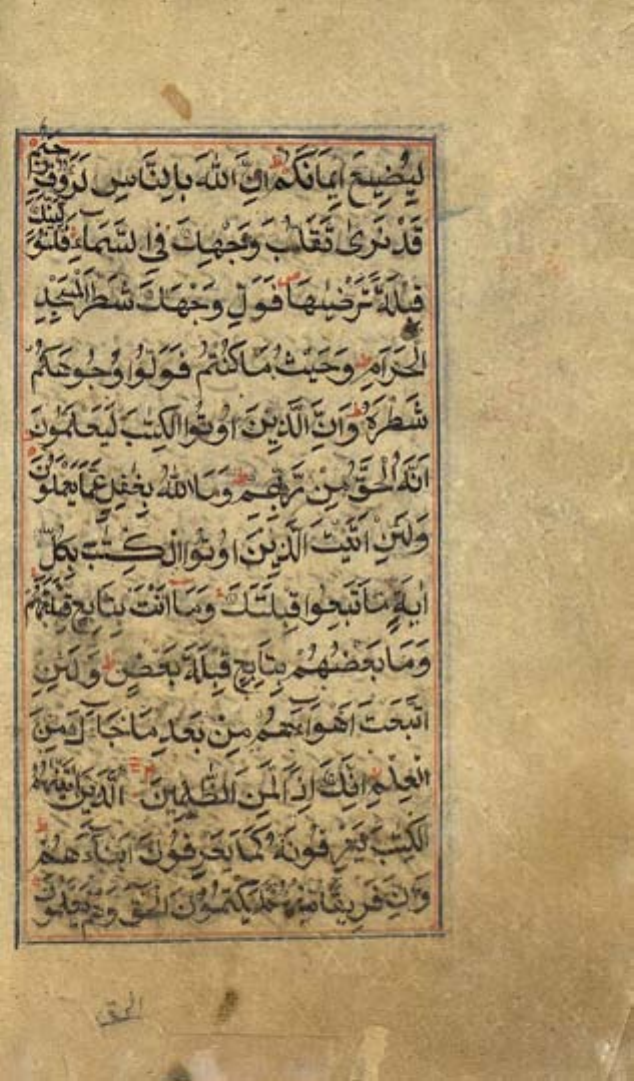 لِيُضِيعَ اِيمَانَكُمْ ط اِنَّ اللهَ بِالنَّاسِ لَرَؤُفٌ رَحِيمٌ
قَدْ نَرٰى تَقَلُّبَ وَجْهِكَ فِى السَّمَآءِ فَلَنُوَلِّيَنَّكَ
قِبْلَةً تَرْضٰىهَا ص فَوَلِّ وَجْهَكَ شَطْرَ الْمَسْجِدِ
الْحَرَامِ ط وَحَيْثُ مَا كُنْتُمْ فَوَلُّوا وُجُوهَكُمْ
شَطْرَهُ ط وَاِنَّ الَّذِينَ اُوتُوا الْكِتٰبَ لَيَعْلَمُونَ
اَنَّهُ الْحَقُّ مِنْ رَبِّهِمْ ط وَمَا اللهُ بِغٰفِلٍ عَمَّا يَعْمَلُونَ
وَلَئِنْ اَتَيْتَ الَّذِينَ اُوتُوا الْكِتٰبَ بِكُلِّ
اٰيَةٍ مَا تَبِعُوا قِبْلَتَكَ وَمَا اَنْتَ بِتَابِعٍ قِبْلَتَهُمْ
وَمَا بَعْضُهُمْ بِتَابِعٍ قِبْلَةَ بَعْضٍ ط وَلَئِنِ
اتَّبَعْتَ اَهْوَآءَهُمْ مِنْ بَعْدِ مَا جَآءَكَ مِنَ
الْعِلْمِ اِنَّكَ اِذًا لَمِنَ الظّٰلِمِينَ الَّذِينَ اٰتَيْنٰهُمُ
الْكِتٰبَ يَعْرِفُونَهُ كَمَا يَعْرِفُونَ اَبْنَآءَهُمْ ط
وَاِنَّ فَرِيقًا مِنْهُمْ لَيَكْتُمُونَ الْحَقَّ وَهُمْ يَعْلَمُونَ
الحق